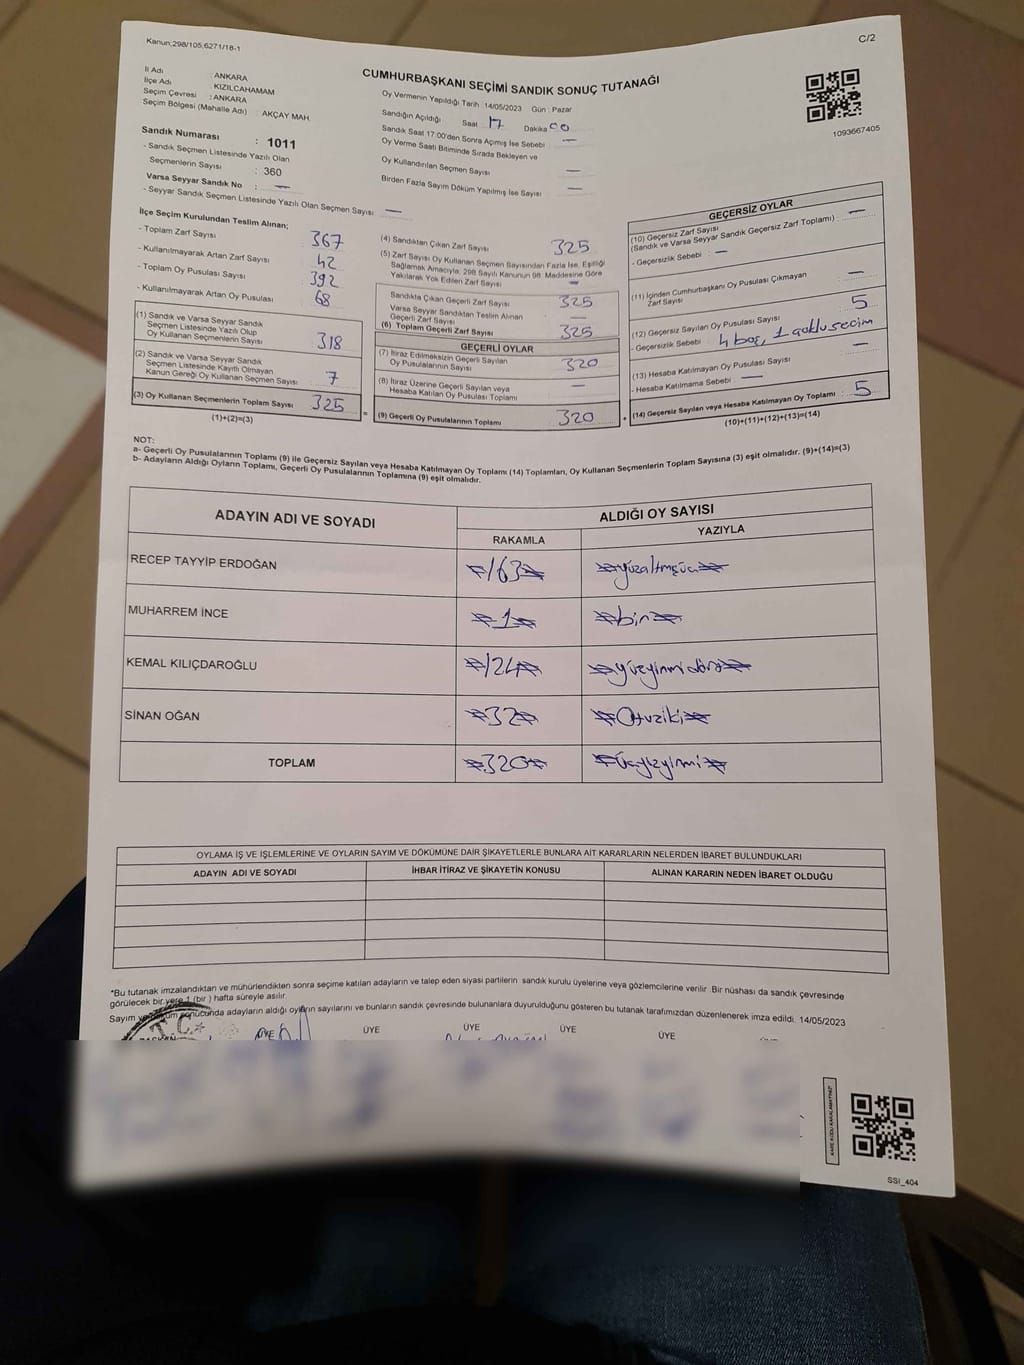 Kanun;298/105,6271/18-1
C/2
CUMHURBAŞKANI SEÇİMİ SANDIK SONUÇ TUTANAĞI
İl Adı : ANKARA
İlçe Adı : KIZILCAHAMAM
Seçim Çevresi : ANKARA
Seçim Bölgesi (Mahalle Adı) : AKÇAY MAH.
Sandık Numarası : 1011
- Sandık Seçmen Listesinde Yazılı Olan
Seçmenlerin Sayısı : 360
Varsa Seyyar Sandık No : —
- Seyyar Sandık Seçmen Listesinde Yazılı Olan Seçmen Sayısı : —
Oy Vermenin Yapıldığı Tarih : 14/05/2023 Gün : Pazar
Sandığın Açıldığı Saat 17 Dakika 00
Sandık Saat 17.00'den Sonra Açımış İse Sebebi : —
Oy Verme Saati Bitiminde Sırada Bekleyen ve
Oy Kullandırılan Seçmen Sayısı : —
Birden Fazla Sayım Döküm Yapılmış İse Sayısı : —
1093667405
İlçe Seçim Kurulundan Teslim Alınan;
- Toplam Zarf Sayısı 367
- Kullanılmayarak Artan Zarf Sayısı 42
- Toplam Oy Pusulası Sayısı 392
- Kullanılmayarak Artan Oy Pusulası 68
(1) Sandık ve Varsa Seyyar Sandık
Seçmen Listesinde Yazılı Olup
Oy Kullanan Seçmenlerin Sayısı 318
(2) Sandık ve Varsa Seyyar Sandık
Seçmen Listesinde Kayıtlı Olmayan
Kanun Gereği Oy Kullanan Seçmen Sayısı 7
(3) Oy Kullanan Seçmenlerin Toplam Sayısı 325
(1)+(2)=(3)
=
(4) Sandıktan Çıkan Zarf Sayısı 325
(5) Zarf Sayısı Oy Kullanan Seçmen Sayısından Fazla İse, Eşitliği
Sağlamak Amacıyla, 298 Sayılı Kanunun 98. Maddesine Göre
Yakılarak Yok Edilen Zarf Sayısı —
Sandıkta Çıkan Geçerli Zarf Sayısı 325
Varsa Seyyar Sandıktan Teslim Alınan
Geçerli Zarf Sayısı —
(6) Toplam Geçerli Zarf Sayısı 325
GEÇERLİ OYLAR
(7) İtiraz Edilmeksizin Geçerli Sayılan
Oy Pusulalarının Sayısı 320
(8) İtiraz Üzerine Geçerli Sayılan veya
Hesaba Katılan Oy Pusulası Toplamı —
(9) Geçerli Oy Pusulalarının Toplamı 320
+
GEÇERSİZ OYLAR
(10) Geçersiz Zarf Sayısı
(Sandık ve Varsa Seyyar Sandık Geçersiz Zarf Toplamı) : —
- Geçersizlik Sebebi : —
(11) İçinden Cumhurbaşkanı Oy Pusulası Çıkmayan
Zarf Sayısı —
(12) Geçersiz Sayılan Oy Pusulası Sayısı 5
- Geçersizlik Sebebi 4 boş, 1 çoklu seçim
(13) Hesaba Katılmayan Oy Pusulası Sayısı —
- Hesaba Katılmama Sebebi : —
(14) Geçersiz Sayılan veya Hesaba Katılmayan Oy Toplamı 5
(10)+(11)+(12)+(13)=(14)
NOT:
a- Geçerli Oy Pusulalarının Toplamı (9) ile Geçersiz Sayılan veya Hesaba Katılmayan Oy Toplamı (14) Toplamları, Oy Kullanan Seçmenlerin Toplam Sayısına (3) eşit olmalıdır. (9)+(14)=(3)
b- Adayların Aldığı Oyların Toplamı, Geçerli Oy Pusulalarının Toplamına (9) eşit olmalıdır.
ADAYIN ADI VE SOYADI ALDIĞI OY SAYISI
RAKAMLA YAZIYLA
RECEP TAYYİP ERDOĞAN 163 yüzaltmışüç
MUHARREM İNCE 1 bir
KEMAL KILIÇDAROĞLU 124 yüzyirmi dört
SİNAN OĞAN 32 Otuziki
TOPLAM 320 üçyüzyirmi
OYLAMA İŞ VE İŞLEMLERİNE VE OYLARIN SAYIM VE DÖKÜMÜNE DAİR ŞİKAYETLERLE BUNLARA AİT KARARLARIN NELERDEN İBARET BULUNDUKLARI
ADAYIN ADI VE SOYADI İHBAR İTİRAZ VE ŞİKAYETİN KONUSU ALINAN KARARIN NEDEN İBARET OLDUĞU
*Bu tutanak imzalandıktan ve mühürlendikten sonra seçime katılan adayların ve talep eden siyasi partilerin sandık kurulu üyelerine veya gözlemcilerine verilir. Bir nüshası da sandık çevresinde
görülecek bir yere 1 (bir ) hafta süreyle asılır.
Sayım ve döküm sonucunda adayların aldığı oyların sayılarını ve bunların sandık çevresinde bulunanlara duyurulduğunu gösteren bu tutanak tarafımızdan düzenlenerek imza edildi. 14/05/2023
T.C.
BAŞKAN ÜYE ÜYE ÜYE ÜYE ÜYE
SSI_404